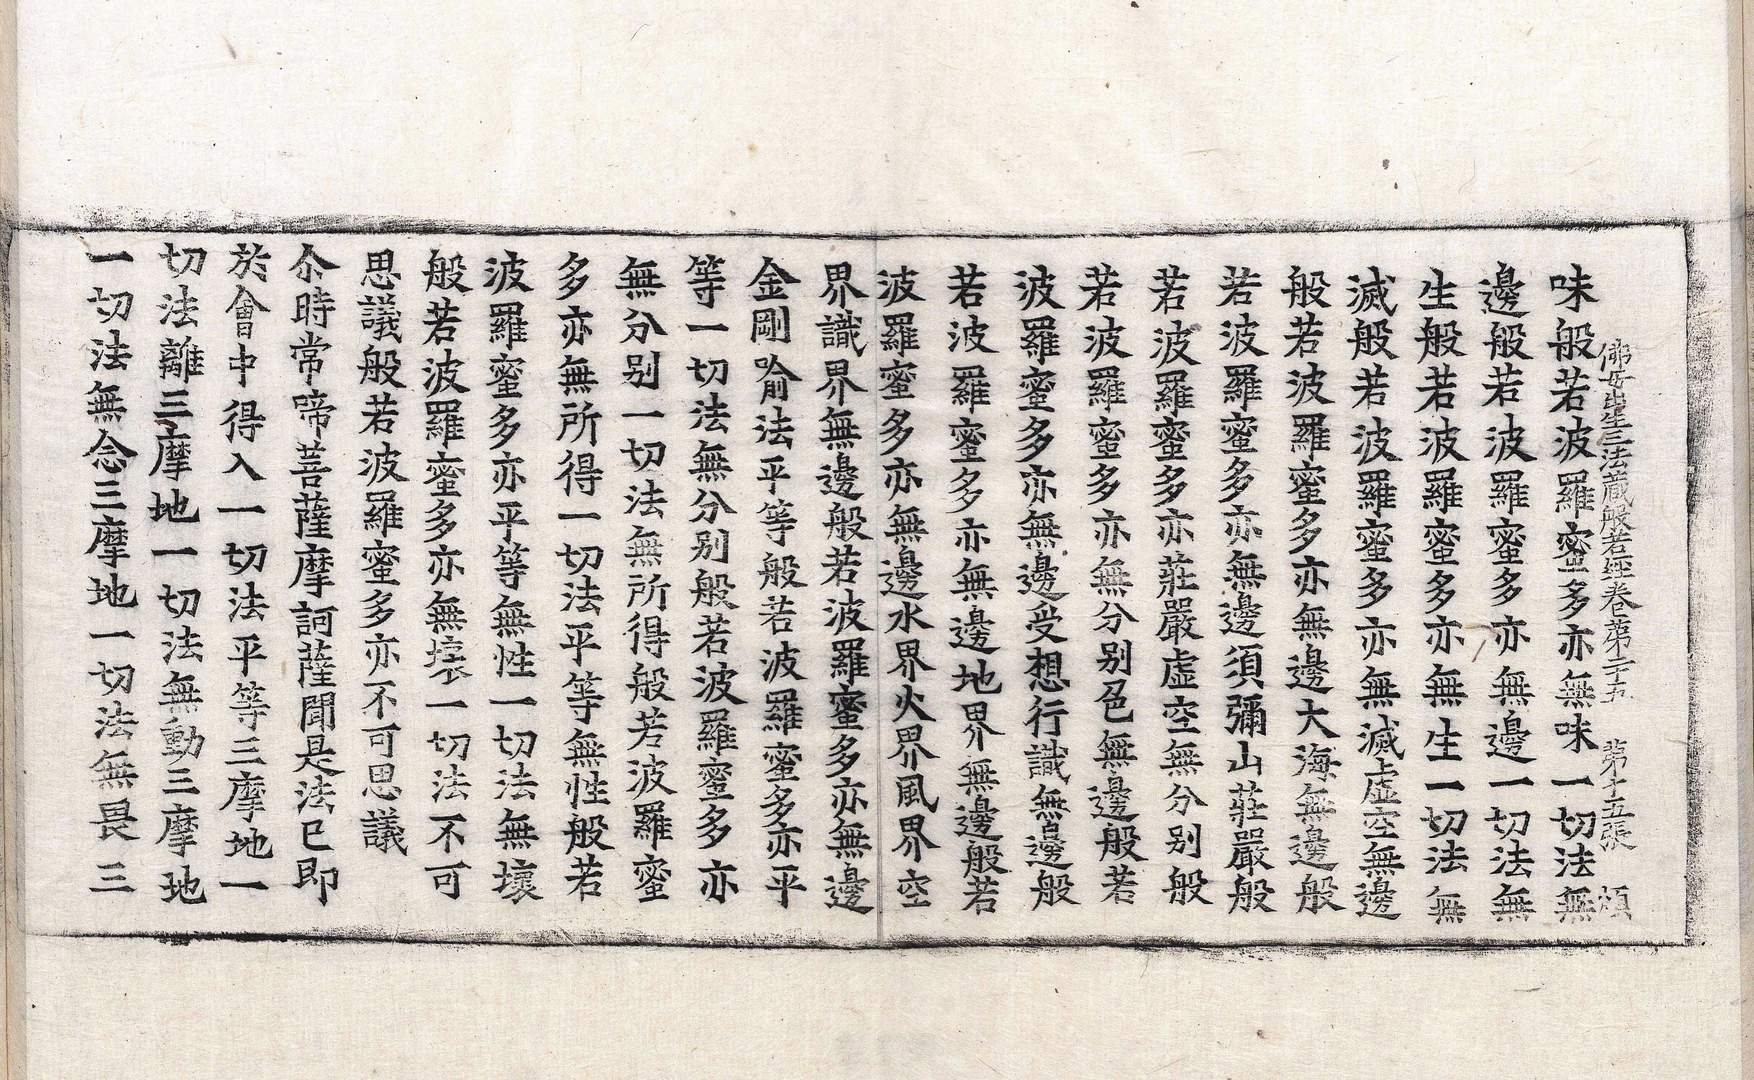 佛母出生三法藏般若經卷第二十五 第十五張 煩
味般若波羅蜜多亦無味一切法無
邊般若波羅蜜多亦無邊一切法無
生般若波羅蜜多亦無生一切法無
滅般若波羅蜜多亦無滅虛空無邊
般若波羅蜜多亦無邊大海無邊般
若波羅蜜多亦無邊須彌山莊嚴般
若波羅蜜多亦莊嚴虛空無分別般
若波羅蜜多亦無分別色無邊般若
波羅蜜多亦無邊受想行識無邊般
若波羅蜜多亦無邊地界無邊般若
波羅蜜多亦無邊水界火界風界空
界識界無邊般若波羅蜜多亦無邊
金剛喻法平等般若波羅蜜多亦平
等一切法無分別般若波羅蜜多亦
無分別一切法無所得般若波羅蜜
多亦無所得一切法平等無性般若
波羅蜜多亦平等無性一切法無壞
般若波羅蜜多亦無壞一切法不可
思議般若波羅蜜多亦不可思議
尒時常啼菩薩摩訶薩聞是法已即
於會中得入一切法平等三摩地一
切法離三摩地一切法無動三摩地
一切法無念三摩地一切法無畏三